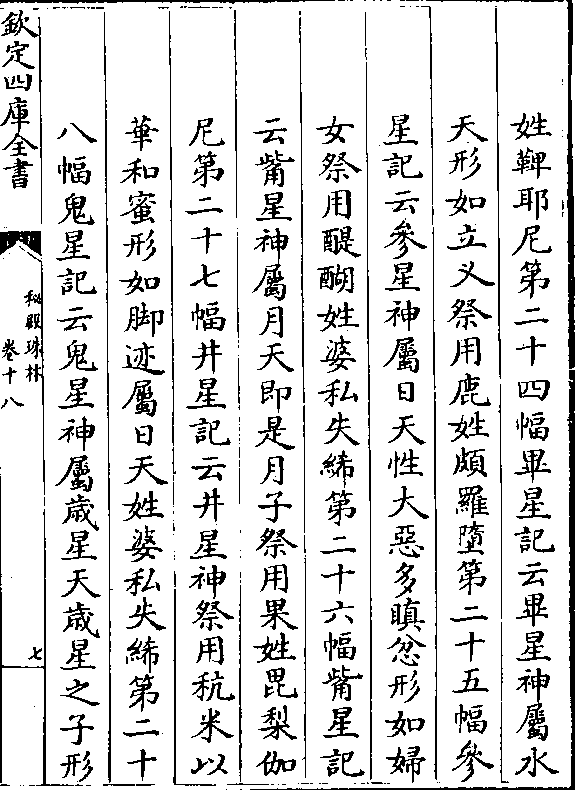 姓鞞耶尼第二十四幅畢星記云畢星神屬水
天形如立义祭用鹿姓頗羅墮第二十五幅參
星記云參星神屬日天性大惡多瞋忿形如婦
女祭用醍醐姓婆私失絺第二十六幅觜星記
云觜星神屬月天即是月子祭用果姓毘梨伽
尼第二十七幅井星記云井星神祭用秔米以
華和蜜形如脚迹屬日天姓婆私失絺第二十
八幅鬼星記云鬼星神屬歲星天歲星之子形
欽定四庫全書
秘殿珠林
卷十八
七